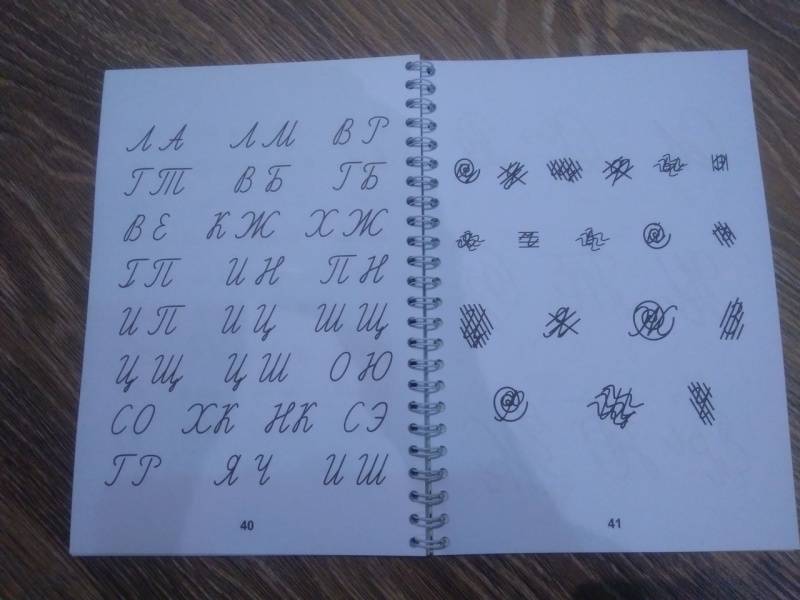 Л А Л М В Р
Г Т В Б Г Б
В Е К Ж Х Ж
Г П И Н П Н
И П И Ц Ш Щ
Ц Щ Ц Ш О Ю
С О Х К Н К С Э
Г Р Я Ч И Ш
40
41